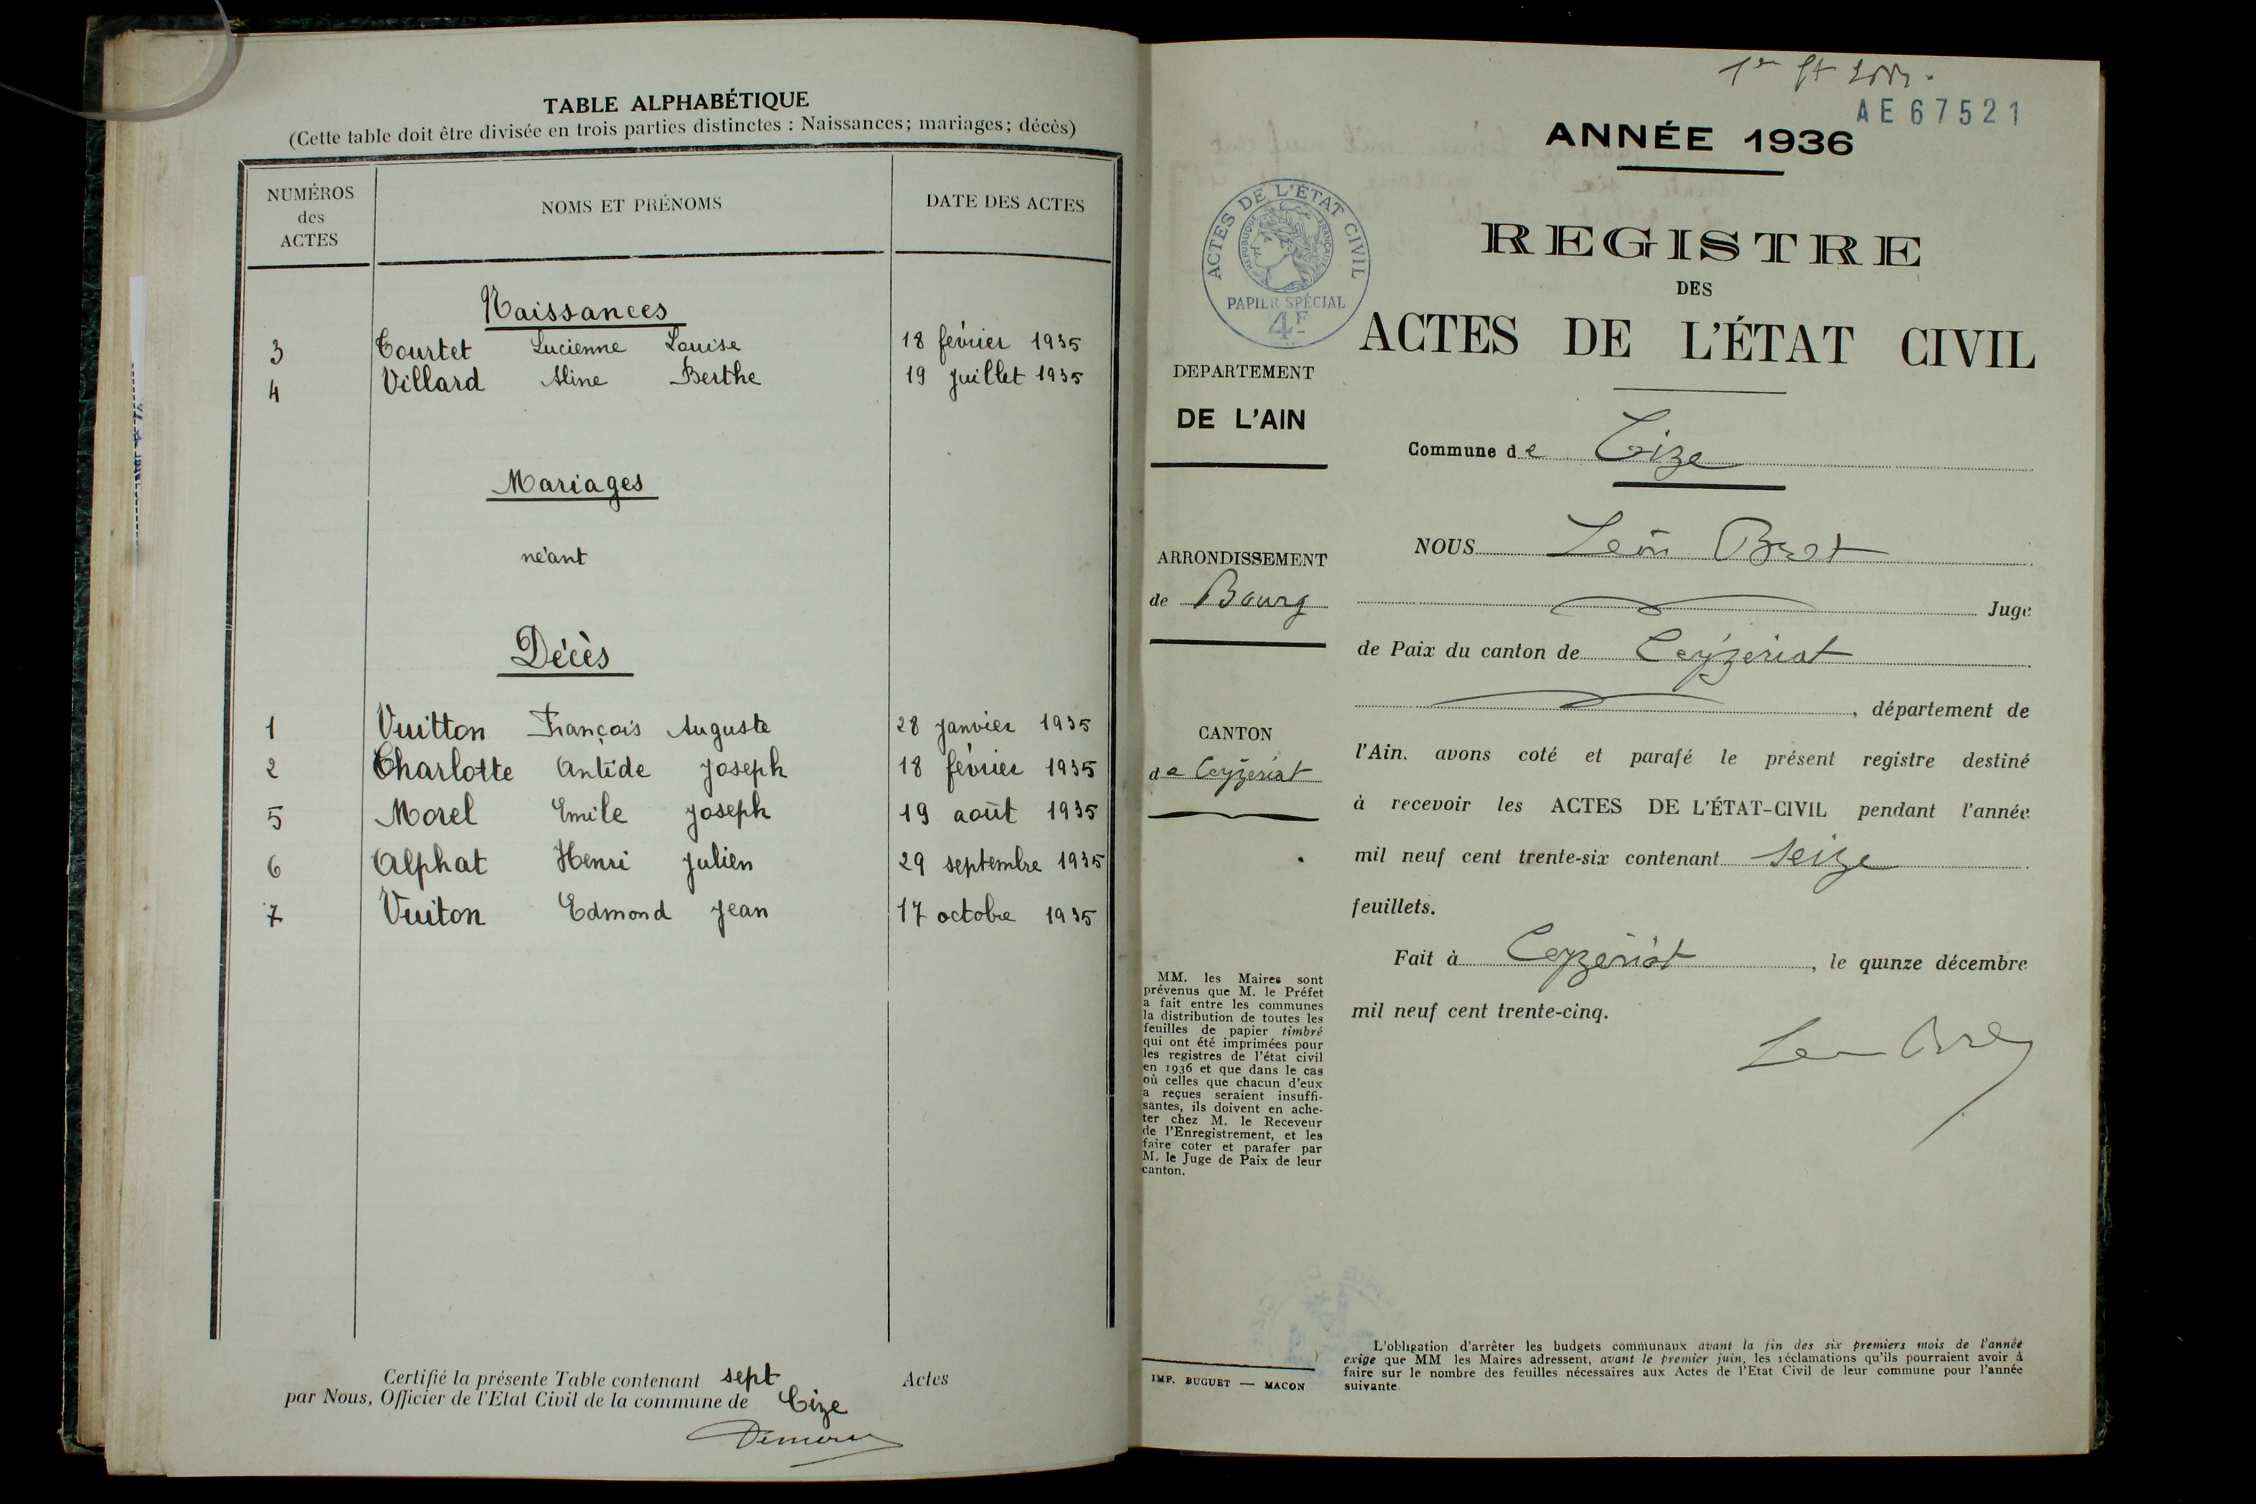 TABLE ALPHABÉTIQUE
(Cette table doit être divisée en trois parties distinctes : Naissances; mariages; décès)
NUMÉROS
des
ACTES
NOMS ET PRÉNOMS
DATE DES ACTES
Naissances
3 Courtet Lucienne Louise 18 février 1935
4 Villard Aline Berthe 19 juillet 1935
Mariages
néant
Décès
1 Vuitton François Auguste 28 janvier 1935
2 Charlotte Antide Joseph 18 février 1935
5 Morel Emile Joseph 19 août 1935
6 Alphat Henri Julien 29 septembre 1935
7 Vuiton Edmond Jean 17 octobre 1935
Certifié la présente Table contenant sept Actes
par Nous, Officier de l'Etat Civil de la commune de Cize
AE67521
ANNÉE 1936
REGISTRE
DES
ACTES DE L'ÉTAT CIVIL
ACTES DE L'ÉTAT CIVIL
RÉPUBLIQUE FRANÇAISE
PAPIER SPÉCIAL
4F
DEPARTEMENT
DE L'AIN
ARRONDISSEMENT
de Bourg
CANTON
de Ceyzériat
MM. les Maires sont
prévenus que M. le Préfet
a fait entre les communes
la distribution de toutes les
feuilles de papier timbré
qui ont été imprimées pour
les registres de l'état civil
en 1936 et que dans le cas
où celles que chacun d'eux
a reçues seraient insuffi-
santes, ils doivent en ache-
ter chez M. le Receveur
de l'Enregistrement, et les
faire coter et parafer par
M. le Juge de Paix de leur
canton.
IMP. BUGUET — MACON
Commune de Cize
NOUS Léon
Juge
de Paix du canton de Ceyzériat
, département de
l'Ain. avons coté et parafé le présent registre destiné
à recevoir les ACTES DE L'ÉTAT-CIVIL pendant l'année
mil neuf cent trente-six contenant seize
feuillets.
Fait à Ceyzériat, le quinze décembre
mil neuf cent trente-cinq.
L'obligation d'arrêter les budgets communaux avant la fin des six premiers mois de l'année
exige que MM les Maires adressent, avant le premier juin, les réclamations qu'ils pourraient avoir à
faire sur le nombre des feuilles nécessaires aux Actes de l'Etat Civil de leur commune pour l'année
suivante.